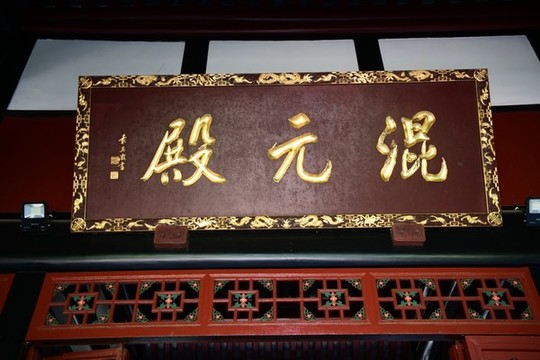 混元殿